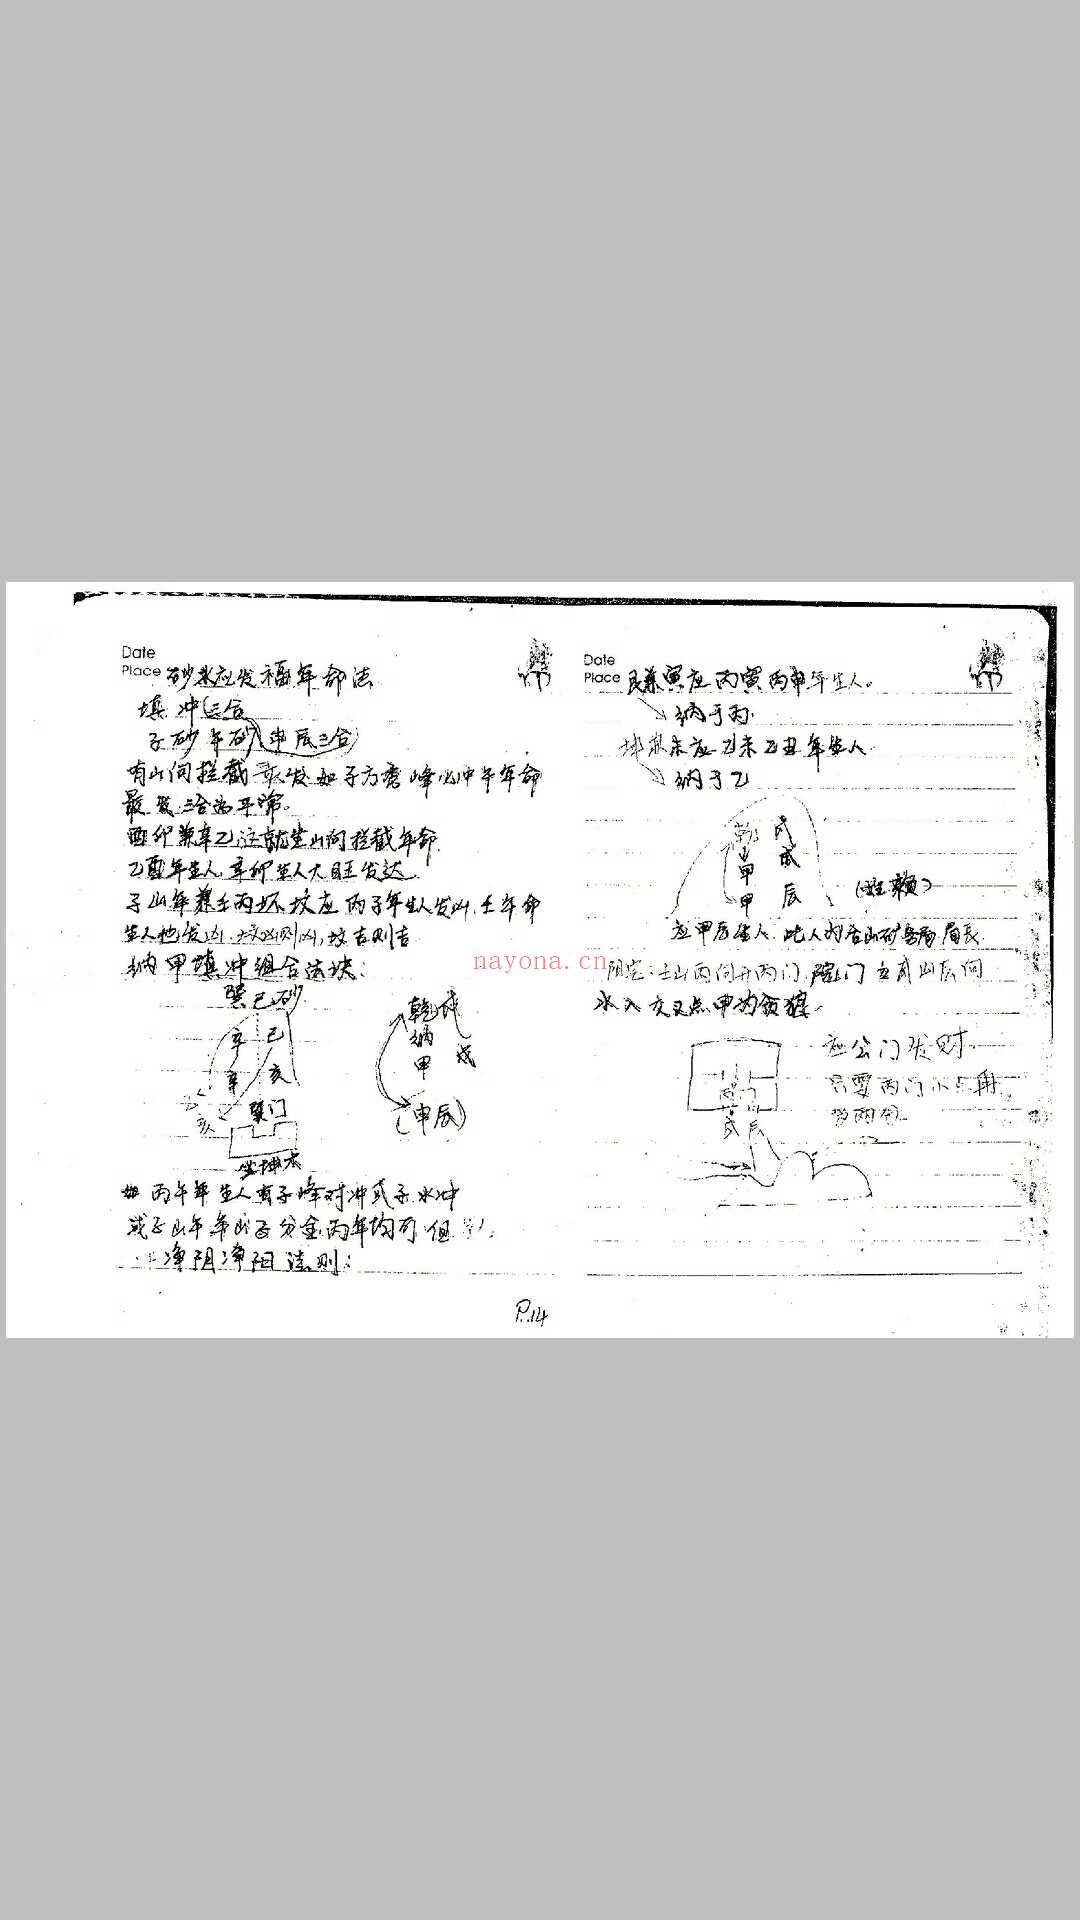 Date
Place 砂水应发福年命法
填冲(三合
子砂 午砂(申辰三合)
有山向拦截来发 如子方秀峰必中午年命
最发 三合为平常。
酉卯兼辛乙 这就坐山向拦截年命
乙酉年生人 辛卯生人大旺发达
子山午兼壬丙 坏坟应丙子年生人发凶 壬午命
生人也发凶 坟凶则凶, 坟吉则吉
纳甲填冲组合法诀:
巽巳砂
辛 巳
辛 亥
巽门
乾 戌
纳
甲 戌
(甲辰)
如丙午年生人有子峰对冲或子水冲
或子山午 分金丙年均可 但
净阴净阳法则:
Date
Place 艮兼寅应丙寅丙申年生人。
纳于丙.
坤兼未应乙未乙丑年生人
纳于乙
乾 戌
山 戌
甲
甲 辰
(姓赖)
应甲辰生人. 此人为 山矿务局局长.
阳宅: 壬山丙向开丙门, 院门 戌山辰向
水入交叉点甲为贪狼.
应公门发财.
只要两门
戌 辰
P.14
nayona.cn